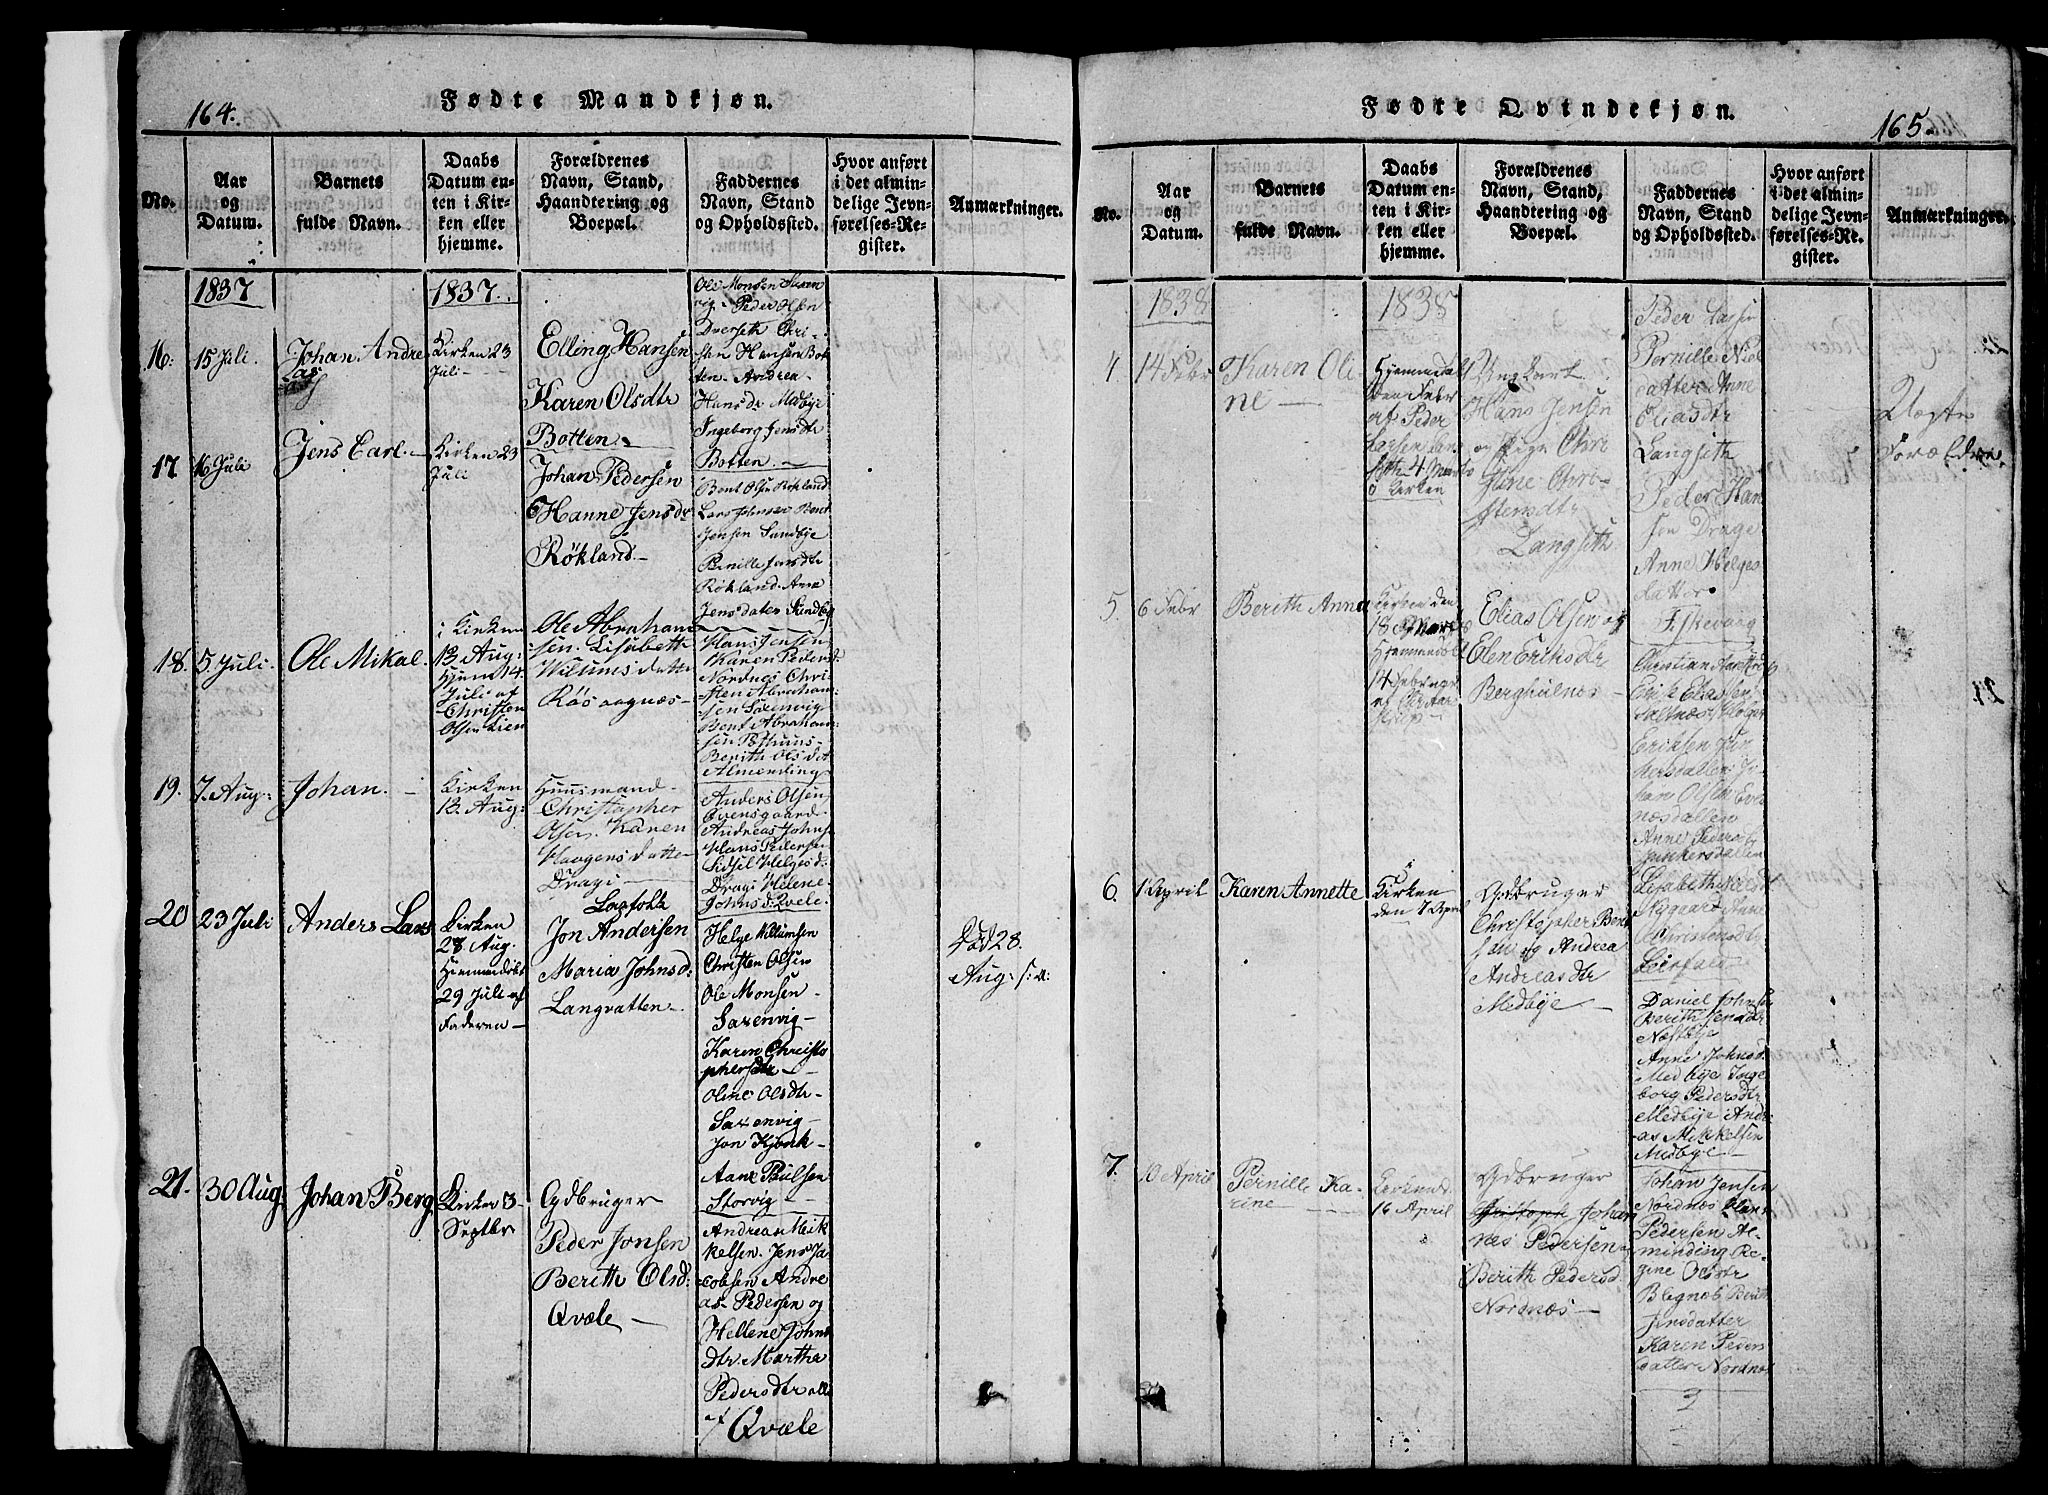 164.
Fødte Mandkjøn.
No.
Aar
og
Datum.
Barnets
fulde Navn.
Daabs
Datum en-
ten i Kir-
ken eller
hjemme.
Forældrenes
Navn, Stand,
Haandtering og
Boepæl.
Faddernes
Navn, Stand
og Opholdssted.
Hvor anført
i det almin-
delige Jevn-
førelses-Re-
gister.
Anmærkninger.
1837
1837.
16.
15 Juli.
Johan Andre
as
Kirken 23
Juli
Elling Hansen
Karen Olsdtr
Botten
Ole Monsen Saxen
vig Peder Olsen
Dverseth Chri-
sten Hansen Bot
ten Andrea
Hansdr Medbye
Ingeborg Jensdtr
Botten.
17.
16 Juli
Jens Carl.
Kirken 23
Juli
Johan Pedersen
Hanne Jensdr
Røkland
Bent Olsen Rokland
Lars Johnsen Bent
Jensen Sundbye
Pernille Jensdtr
Røkland Anne
Jensdater Sundby
18.
5 Juli.
Ole Mikal.
i Kirken
13 Aug:
Hjem 14
Juli af
Christen
Olsen Lien
Ole Abraham
sen. Lisabeth
Willumsdatter
Røsaagnæs
Hans Jensen
Karen Pedersd:
Nordnes Chri-
sten Abraham
sen Saxenvig
Bent Abraham
sen
Berith Olsdat
Almending
19.
7. Aug:
Johan.
Kirken
13. Aug:
Huusmand
Christopher
Olsen. Karen
Haagensdatter
Dragi
Anders Olsen
Evensgaard
Andreas Johns
Hans Pedersen
Sidsel Helgesd:
Dragi Helene
Johnsd: Qvele.
20
23 Juli
Anders Lars
Kirken
28 Aug.
Hjemmedøbt
29 Juli af
Faderen
Jon Andersen
Maria Johnsd:
Langvatten
Helge Willumsen
Christen Olsen
Ole Monsen
Saxenvig
Karen Christo
phersdtr
Oline Olsdtr
Saxenvig
Jon
Aane Poulsen
Storvig
Død 28.
Aug: s: a:
21.
30 Aug:
Johan Berg
Kirken 3
Septbr
Gdbruger
Peder Jonsen
Berith Olsd:
Qvæle
Andreas Mik
kelsen. Jens Ja
cobsen Andre
as Pedersen og
Hellene Johns
dtr. Martha
Pedersdtr alle
af Qvæle
Fødte Qvindekjøn.
165.
No.
Aar
og
Datum.
Barnets
fulde Navn.
Daabs
Datum en-
ten i Kir-
ken eller
hjemme.
Forældrenes
Navn, Stand,
Haandtering og
Boepæl.
Faddernes
Navn, Stand
og Opholdssted.
Hvor anført
i det almin-
delige Jevn-
førelses-Re-
gister.
Anmærkninger.
1838
1838
4
14 Febr
Karen Oli
ne
Hjemmedøbt
af Peder
Larsen Lang
seth 4 Marts
Kirken
Ungkarl
Hans Jensen
og Pige Chri
stine Chri-
stensdtr
Langseth
Peder Larsen
Pernille Niel
datter Anne
Eliasdtr
Langseth
Peder Han
sen Drage
Anne Helges
datter
Fiskevaag
Uægte
Forældre
5.
6 Febr
Berith Anna
Kirken den
18 Marts
Hjemmedøbt
14 Februar
Elias Olsen og
Elen Eriksdtr
Berghulnes
Christian
Erik Eliassen
Saltnæs Holger
Eriksen Jun
kersdallen Jo-
han Olsen Even
næsdallen
Anne Pedersd
Junkersdallen
6.
1 April
Karen Annette
Kirken
den 7 April
Gdbruger
Christopher Bent
sen og Andrea
Andreasdtr
Medbye
Lisabeth Nielsd
Nygaard Anne
Christensd
Leirfald
Daniel Johnsen
Berith Jensdtr
Næstbye
Anne Johnsd.
Medbye Inge
borg Pedersdtr
Medbye Andre
as Mikkelsen
Medbye
7.
10 April
Pernille Ka-
rine
16 April
Gdbruger
Johan
nes Pedersen
Berith Pedersd.
Nordnæs
Johan Jensen
Nordnæs Hans
Pedersen Al-
minding Re-
gine Olsdtr
Blegnæs Berit
Jensdatter
Karen Peders
datter Nordnæs